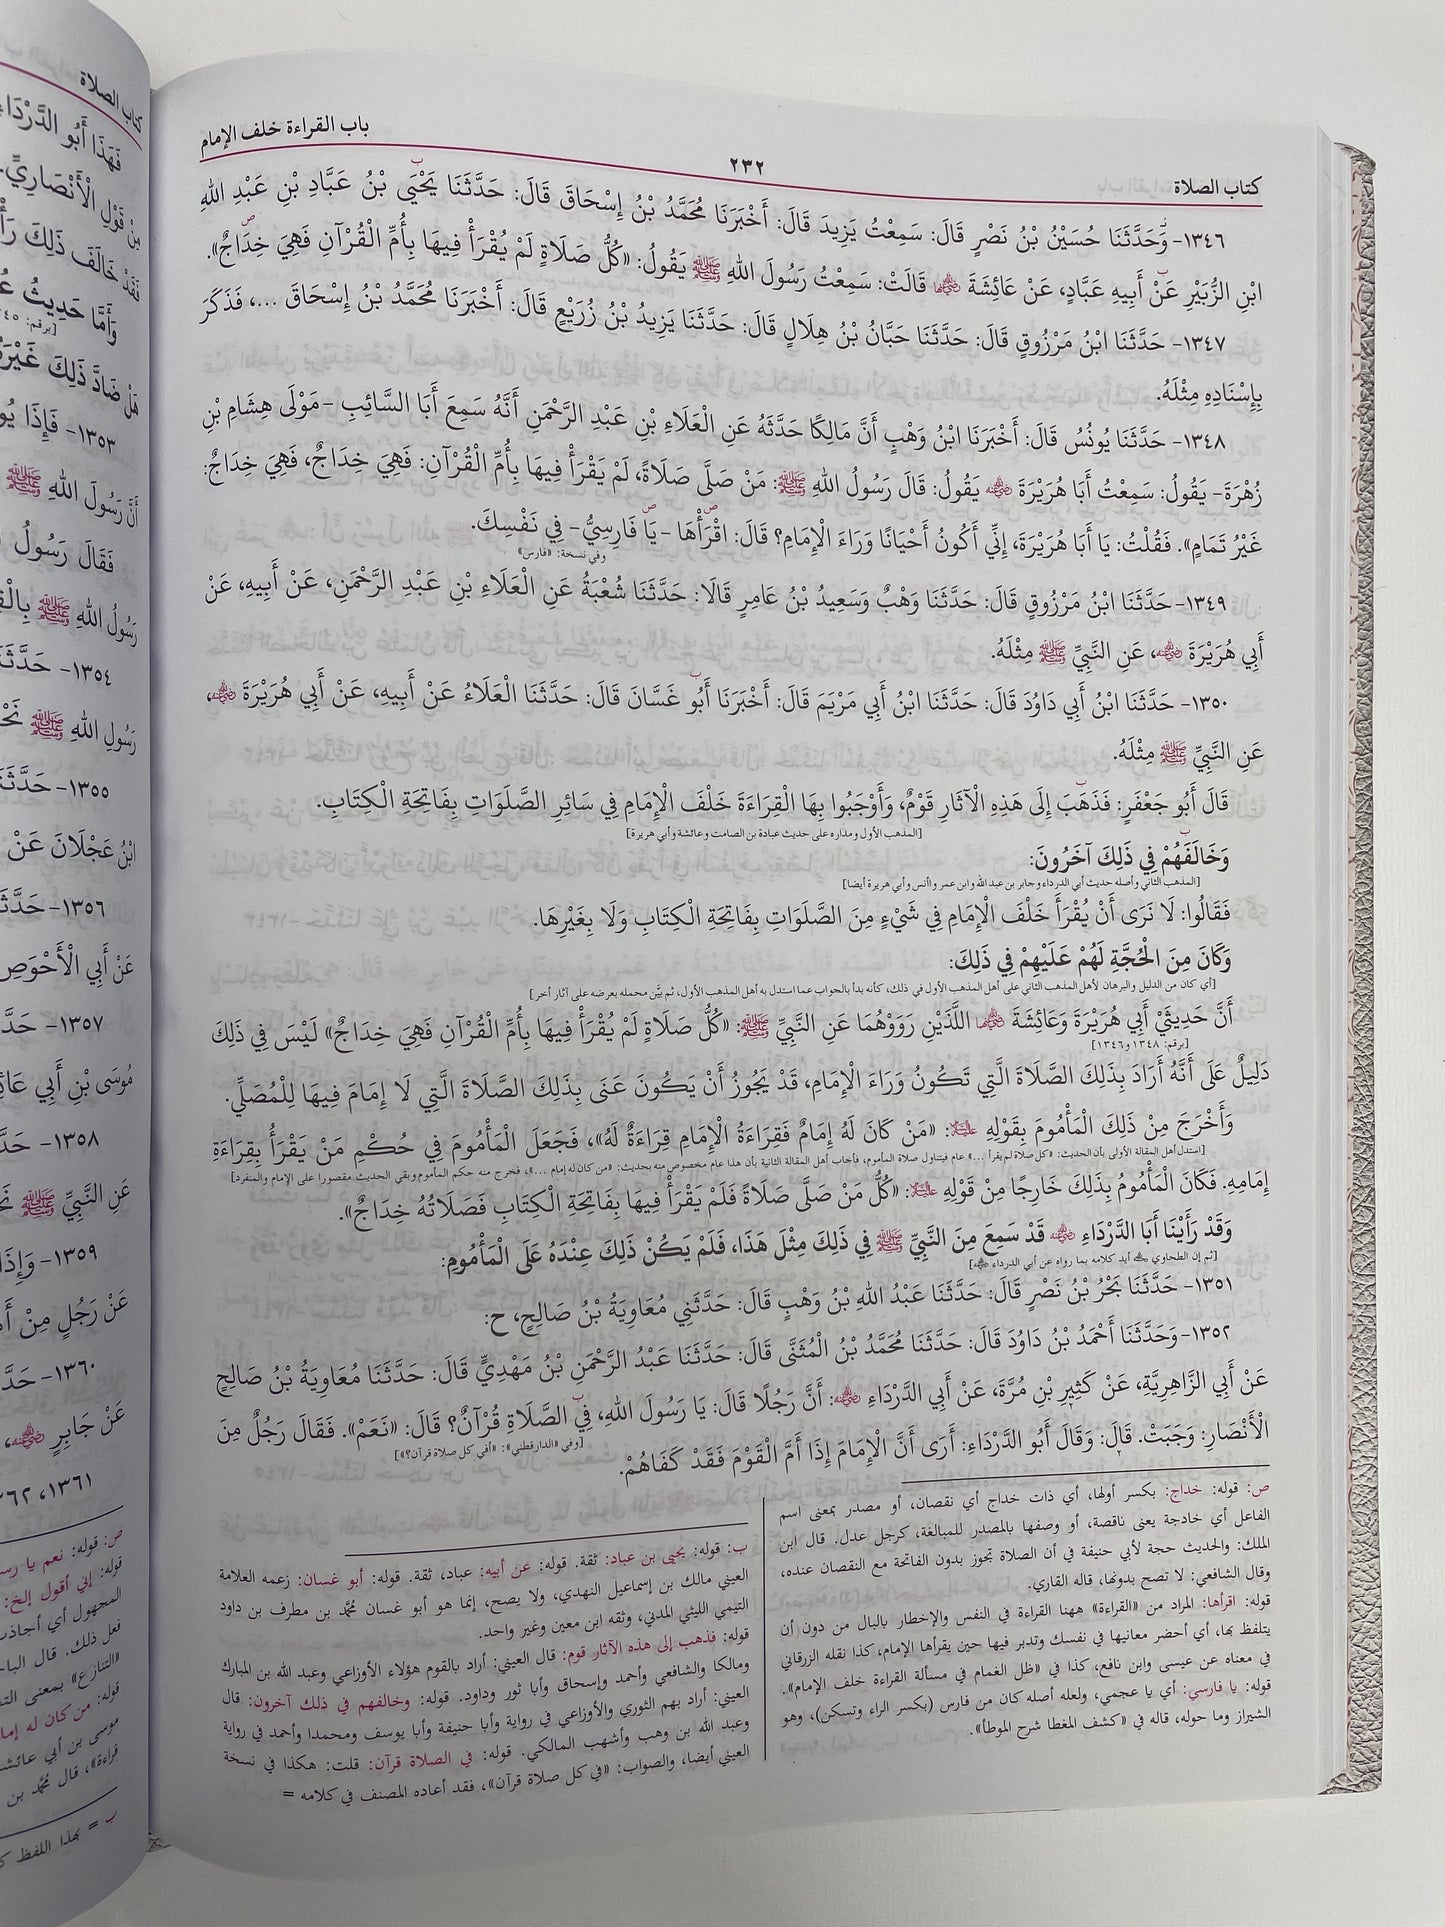 باب القراءة خلف الإمام
٢٣٢
كتاب الصلاة
١٣٤٦- وَحَدَّثَنَا حُسَيْنُ بْنُ نَصْرٍ قَالَ: سَمِعْتُ يَزِيدَ قَالَ: أَخْبَرَنَا مُحَمَّدُ بْنُ إِسْحَاقَ قَالَ: حَدَّثَنَا يَحْيَى بْنُ عَبَّادِ بْنِ عَبْدِ اللهِ
ابْنِ الزُّبَيْرِ عَنْ أَبِيهِ عَبَّادٍ، عَنْ عَائِشَةَ رضي الله عنها قَالَتْ: سَمِعْتُ رَسُولَ اللهِ ﷺ يَقُولُ: «كُلُّ صَلَاةٍ لَمْ يُقْرَأْ فِيهَا بِأُمِّ الْقُرْآنِ فَهِيَ خِدَاجٌ».
١٣٤٧- حَدَّثَنَا ابْنُ مَرْزُوقٍ قَالَ: حَدَّثَنَا حَبَّانُ بْنُ هِلَالٍ قَالَ: حَدَّثَنَا يَزِيدُ بْنُ زُرَيْعٍ قَالَ: أَخْبَرَنَا مُحَمَّدُ بْنُ إِسْحَاقَ ...، فَذَكَرَ
بِإِسْنَادِهِ مِثْلَهُ.
١٣٤٨- حَدَّثَنَا يُونُسُ قَالَ: أَخْبَرَنَا ابْنُ وَهْبٍ أَنَّ مَالِكًا حَدَّثَهُ عَنِ الْعَلَاءِ بْنِ عَبْدِ الرَّحْمَنِ أَنَّهُ سَمِعَ أَبَا السَّائِبِ -مَوْلَى هِشَامِ بْنِ
زُهْرَةَ- يَقُولُ: سَمِعْتُ أَبَا هُرَيْرَةَ رضي الله عنه يَقُولُ: قَالَ رَسُولُ اللهِ ﷺ: مَنْ صَلَّى صَلَاةً، لَمْ يَقْرَأْ فِيهَا بِأُمِّ الْقُرْآنِ: فَهِيَ خِدَاجٌ، فَهِيَ خِدَاجٌ:
غَيْرُ تَمَامٍ». فَقُلْتُ: يَا أَبَا هُرَيْرَةَ، إِنِّي أَكُونُ أَحْيَانًا وَرَاءَ الْإِمَامِ؟ قَالَ: اقْرَأْهَا -يَا فَارِسِيُّ- فِي نَفْسِكَ.
وفي نسخة: «فارس»
١٣٤٩- حَدَّثَنَا ابْنُ مَرْزُوقٍ قَالَ: حَدَّثَنَا وَهْبٌ وَسَعِيدُ بْنُ عَامِرٍ قَالَا: حَدَّثَنَا شُعْبَةُ عَنِ الْعَلَاءِ بْنِ عَبْدِ الرَّحْمَنِ، عَنْ أَبِيهِ، عَنْ
أَبِي هُرَيْرَةَ رضي الله عنه، عَنِ النَّبِيِّ ﷺ مِثْلَهُ.
١٣٥٠- حَدَّثَنَا ابْنُ أَبِي دَاوُدَ قَالَ: حَدَّثَنَا ابْنُ أَبِي مَرْيَمَ قَالَ: أَخْبَرَنَا أَبُو غَسَّانَ قَالَ: حَدَّثَنَا الْعَلَاءُ عَنْ أَبِيهِ، عَنْ أَبِي هُرَيْرَةَ رضي الله عنه،
عَنِ النَّبِيِّ ﷺ مِثْلَهُ.
قَالَ أَبُو جَعْفَرٍ: فَذَهَبَ إِلَى هَذِهِ الْآثَارِ قَوْمٌ، وَأَوْجَبُوا بِهَا الْقِرَاءَةَ خَلْفَ الْإِمَامِ فِي سَائِرِ الصَّلَوَاتِ بِفَاتِحَةِ الْكِتَابِ.
[المذهب الأول ومداره على حديث عبادة بن الصامت وعائشة وأبي هريرة]
وَخَالَفَهُمْ فِي ذَلِكَ آخَرُونَ:
[المذهب الثاني وأصله حديث أبي الدرداء وجابر بن عبد الله وابن عمر وأنس وأبي هريرة أيضا]
فَقَالُوا: لَا نَرَى أَنْ يُقْرَأَ خَلْفَ الْإِمَامِ فِي شَيْءٍ مِنَ الصَّلَوَاتِ بِفَاتِحَةِ الْكِتَابِ وَلَا بِغَيْرِهَا.
وَكَانَ مِنَ الْحُجَّةِ لَهُمْ عَلَيْهِمْ فِي ذَلِكَ:
[أي كان من الدليل والبرهان لأهل المذهب الثاني على أهل المذهب الأول في ذلك، كأنه بدأ بالجواب عما استدل به أهل المذهب الأول، ثم بيَّن محمله بعرضه على آثار أخر]
أَنَّ حَدِيثَيْ أَبِي هُرَيْرَةَ وَعَائِشَةَ رضي الله عنهما اللَّذَيْنِ رَوَوْهُمَا عَنِ النَّبِيِّ ﷺ: «كُلُّ صَلَاةٍ لَمْ يُقْرَأْ فِيهَا بِأُمِّ الْقُرْآنِ فَهِيَ خِدَاجٌ» لَيْسَ فِي ذَلِكَ
[برقم: ١٣٤٨ و١٣٤٦]
دَلِيلٌ عَلَى أَنَّهُ أَرَادَ بِذَلِكَ الصَّلَاةَ الَّتِي تَكُونُ وَرَاءَ الْإِمَامِ، قَدْ يَجُوزُ أَنْ يَكُونَ عَنَى بِذَلِكَ الصَّلَاةَ الَّتِي لَا إِمَامَ فِيهَا لِلْمُصَلِّي.
وَأَخْرَجَ مِنْ ذَلِكَ الْمَأْمُومَ بِقَوْلِهِ عليه السلام: «مَنْ كَانَ لَهُ إِمَامٌ فَقِرَاءَةُ الْإِمَامِ قِرَاءَةٌ لَهُ»، فَجَعَلَ الْمَأْمُومَ فِي حُكْمِ مَنْ يَقْرَأُ بِقِرَاءَةِ
[استدل أهل المقالة الأولى بأن الحديث: «كل صلاة لم يقرأ ...» عام فيتناول صلاة المأموم، فأجاب أهل المقالة الثانية بأن هذا عام مخصوص منه بحديث: «من كان له إمام ...»، فخرج منه حكم المأموم وبقي الحديث مقصورا على الإمام والمنفرد]
إِمَامِهِ. فَكَانَ الْمَأْمُومُ بِذَلِكَ خَارِجًا مِنْ قَوْلِهِ عليه السلام: «كُلُّ مَنْ صَلَّى صَلَاةً فَلَمْ يَقْرَأْ فِيهَا بِفَاتِحَةِ الْكِتَابِ فَصَلَاتُهُ خِدَاجٌ».
وَقَدْ رَأَيْنَا أَبَا الدَّرْدَاءِ رضي الله عنه قَدْ سَمِعَ مِنَ النَّبِيِّ ﷺ فِي ذَلِكَ مِثْلَ هَذَا، فَلَمْ يَكُنْ ذَلِكَ عِنْدَهُ عَلَى الْمَأْمُومِ:
[ثم إن الطحاوي أيد كلامه بما رواه عن أبي الدرداء]
١٣٥١- حَدَّثَنَا بَحْرُ بْنُ نَصْرٍ قَالَ: حَدَّثَنَا عَبْدُ اللهِ بْنُ وَهْبٍ قَالَ: حَدَّثَنِي مُعَاوِيَةُ بْنُ صَالِحٍ، ح:
١٣٥٢- وَحَدَّثَنَا أَحْمَدُ بْنُ دَاوُدَ قَالَ: حَدَّثَنَا مُحَمَّدُ بْنُ الْمُثَنَّى قَالَ: حَدَّثَنَا عَبْدُ الرَّحْمَنِ بْنُ مَهْدِيٍّ قَالَ: حَدَّثَنَا مُعَاوِيَةُ بْنُ صَالِحٍ
عَنْ أَبِي الزَّاهِرِيَّةِ، عَنْ كَثِيرِ بْنِ مُرَّةَ، عَنْ أَبِي الدَّرْدَاءِ رضي الله عنه: أَنَّ رَجُلًا قَالَ: يَا رَسُولَ اللهِ، فِي الصَّلَاةِ قُرْآنٌ؟ قَالَ: «نَعَمْ». فَقَالَ رَجُلٌ مِنَ
[وفي «الدارقطني»: «أفي كل صلاة قرآن؟»]
الْأَنْصَارِ: وَجَبَتْ. قَالَ: وَقَالَ أَبُو الدَّرْدَاءِ: أَرَى أَنَّ الْإِمَامَ إِذَا أَمَّ الْقَوْمَ فَقَدْ كَفَاهُمْ.
ص: قوله: خداج: بكسر أولها، أي ذات خداج أي نقصان، أو مصدر بمعنى اسم
الفاعل أي خادجة يعنى ناقصة، أو وصفها بالمصدر للمبالغة، كرجل عدل. قال ابن
الملك: والحديث حجة لأبي حنيفة في أن الصلاة تجوز بدون الفاتحة مع النقصان عنده،
وقال الشافعي: لا تصح بدونها، قاله القاري.
قوله: اقرأها: المراد من «القراءة» ههنا القراءة في النفس والإخطار بالبال من دون أن
يتلفظ بها، أي أحضر معانيها في نفسك وتدبر فيها حين يقرأها الإمام، كذا نقله الزرقاني
في معناه عن عيسى وابن نافع، كذا في «ظل الغمام في مسألة القراءة خلف الإمام».
قوله: يا فارسي: أي يا عجمي، ولعله أصله كان من فارس (بكسر الراء وتسكن)، وهو
الشيراز وما حوله، قاله في «كشف المغطا شرح الموطأ».
ب: قوله: يحيى بن عباد: ثقة. قوله: عن أبيه: عباد، ثقة. قوله: أبو غسان: زعمه العلامة
العيني مالك بن إسماعيل النهدي، ولا يصح، إنما هو أبو غسان محمد بن مطرف بن داود
التيمي الليثي المدني، وثقه ابن معين وغير واحد.
قوله: فذهب إلى هذه الآثار قوم: قال العيني: أراد بالقوم هؤلاء الأوزاعي وعبد الله بن المبارك
ومالكا والشافعي وأحمد وإسحاق وأبا ثور وداود. قوله: وخالفهم في ذلك آخرون: قال
العيني: أراد بهم الثوري والأوزاعي في رواية وأبا حنيفة وأبا يوسف ومحمدا وأحمد في رواية
وعبد الله بن وهب وأشهب المالكي. قوله: في الصلاة قرآن: قلت: هكذا في نسخة
العيني أيضا، والصواب: «في كل صلاة قرآن»، فقد أعاده المصنف في كلامه =
كتاب الصلاة
فَهَذَا أَبُو الدَّرْدَاءِ
مِنْ قَوْلِ الْأَنْصَارِيِّ
فَقَدْ خَالَفَ ذَلِكَ
وَأَمَّا حَدِيثُ
هَلْ ضَادَّ ذَلِكَ غَيْرَهُ
١٣٥٣- فَإِذَا
أَنَّ رَسُولَ اللهِ ﷺ
فَقَالَ رَسُولُ
رَسُولُ اللهِ ﷺ
١٣٥٤- حَدَّثَنَا
رَسُولِ اللهِ ﷺ
١٣٥٥- حَدَّثَنَا
ابْنُ عَجْلَانَ عَنْ
١٣٥٦- حَدَّثَنَا
عَنْ أَبِي الْأَحْوَصِ
١٣٥٧- حَدَّثَنَا
مُوسَى بْنِ أَبِي
١٣٥٨- حَدَّثَنَا
عَنِ النَّبِيِّ ﷺ
١٣٥٩- وَإِذَا
عَنْ رَجُلٍ مِنْ
١٣٦٠- حَدَّثَنَا
عَنْ جَابِرٍ رضي الله عنه،
١٣٦١،